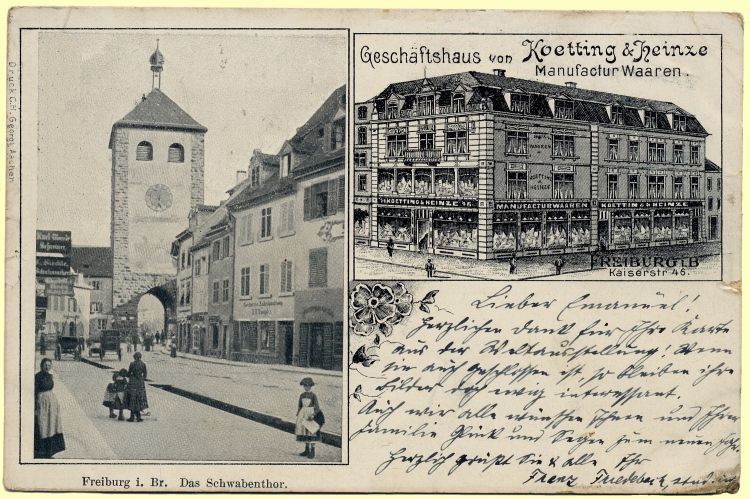 Druck C.H. Georgi, Aachen
Geschäftshaus von Koetting & Heinze
Manufactur Waaren.
KOETTING & HEINZE
MANUFACTURWAREN
KOETTING & HEINZE
FREIBURG i.B
Kaiserstr 46.
Lieber Emanuel!
Herzlichen Dank für Ihre Karte
aus der Weltausstellung! Wenn
sie auch geschlossen ist, so bleiben ihre
Bilder doch ewig interessant.
Auch wir alle wünschen Ihnen und Ihrer
Familie Glück und Segen zum neuen Jahr.
Herzlich grüßt Sie & alle Ihr
Franz
Freiburg i. Br. Das Schwabenthor.